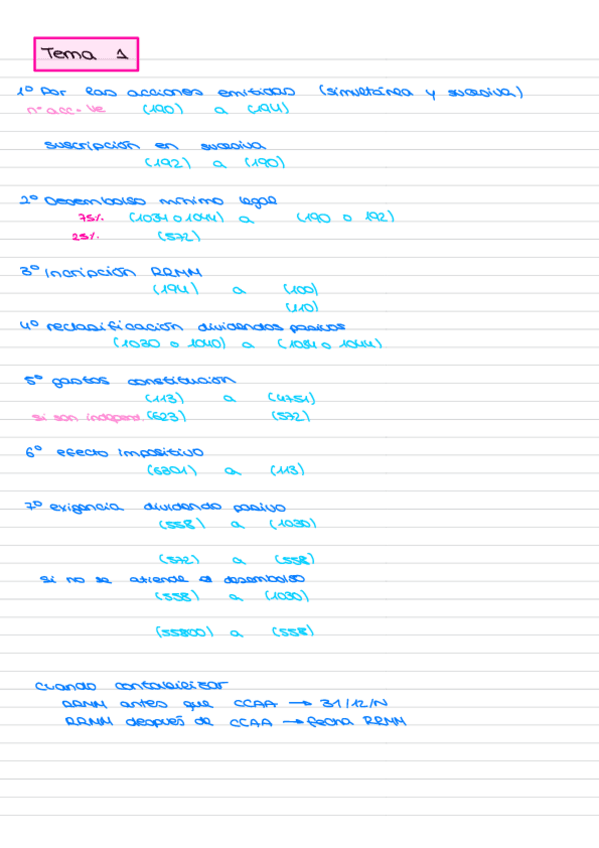 Tema 1
1º Por las acciones emitidas (simultánea y sucesiva)
nº acc · Ve (190) a (194)
suscripción en sucesiva
(192) a (190)
2º Desembolso mínimo legal
75% (1034 o 1044) a (190 o 192)
25% (572)
3º Incripción RRMM
(194) a (100)
(110)
4º reclasificación dividendos pasivos
(1030 o 1040) a (1034 o 1044)
5º gastos constitución
(113) a (4751)
si son independ. (623) (572)
6º efecto impositivo
(6301) a (113)
7º exigencia dividendo pasivo
(558) a (1030)
(572) a (558)
si no se atiende a desembolso
(558) a (1030)
(55800) a (558)
cuando contabilizar
RRMM antes que CCAA → 31/12/N
RRMM después de CCAA → fecha RRMM